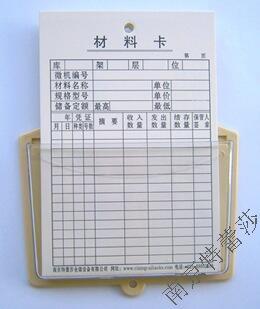 材料卡
第 页
库 架 层 位
微机编号
材料名称 单位
规格型号 单价
储备定额 最高 最低
年 凭证 摘要 收入数量 发出数量 结存数量 保管人签章
月 日 种类 号数
南京特蕾莎仓储设备有限公司
南京特蕾莎